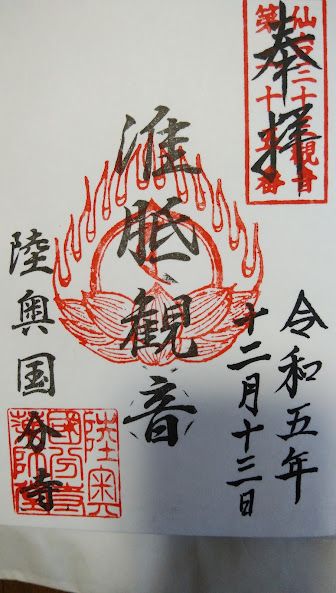 奉拝
仙台三十三観音
第二十五番
令和五年
十二月十三日
准胝観音
陸奥国分寺
陸奥
國分寺
薬師堂